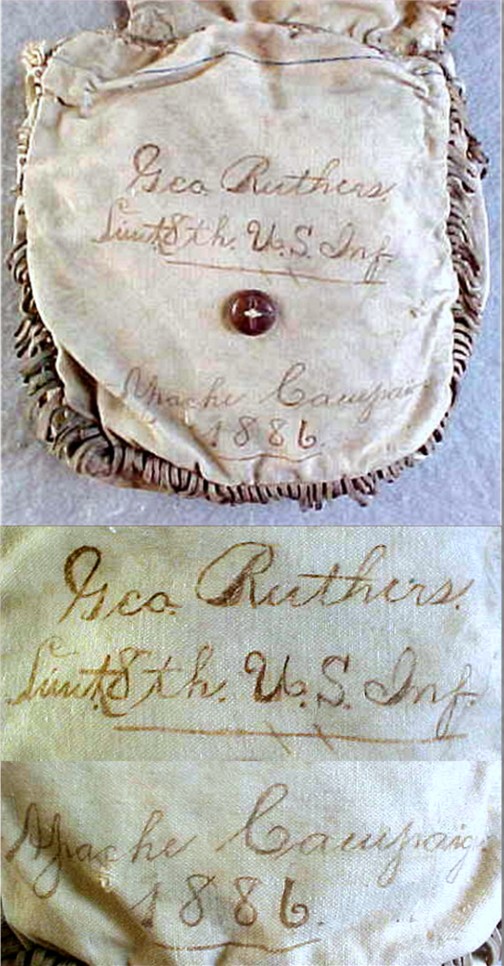 Geo. Ruthers.
Lieut. 8th. U.S. Inf.
Apache Campaign
1886.
Geo. Ruthers.
Lieut. 8th. U.S. Inf.
Apache Campaign
1886.